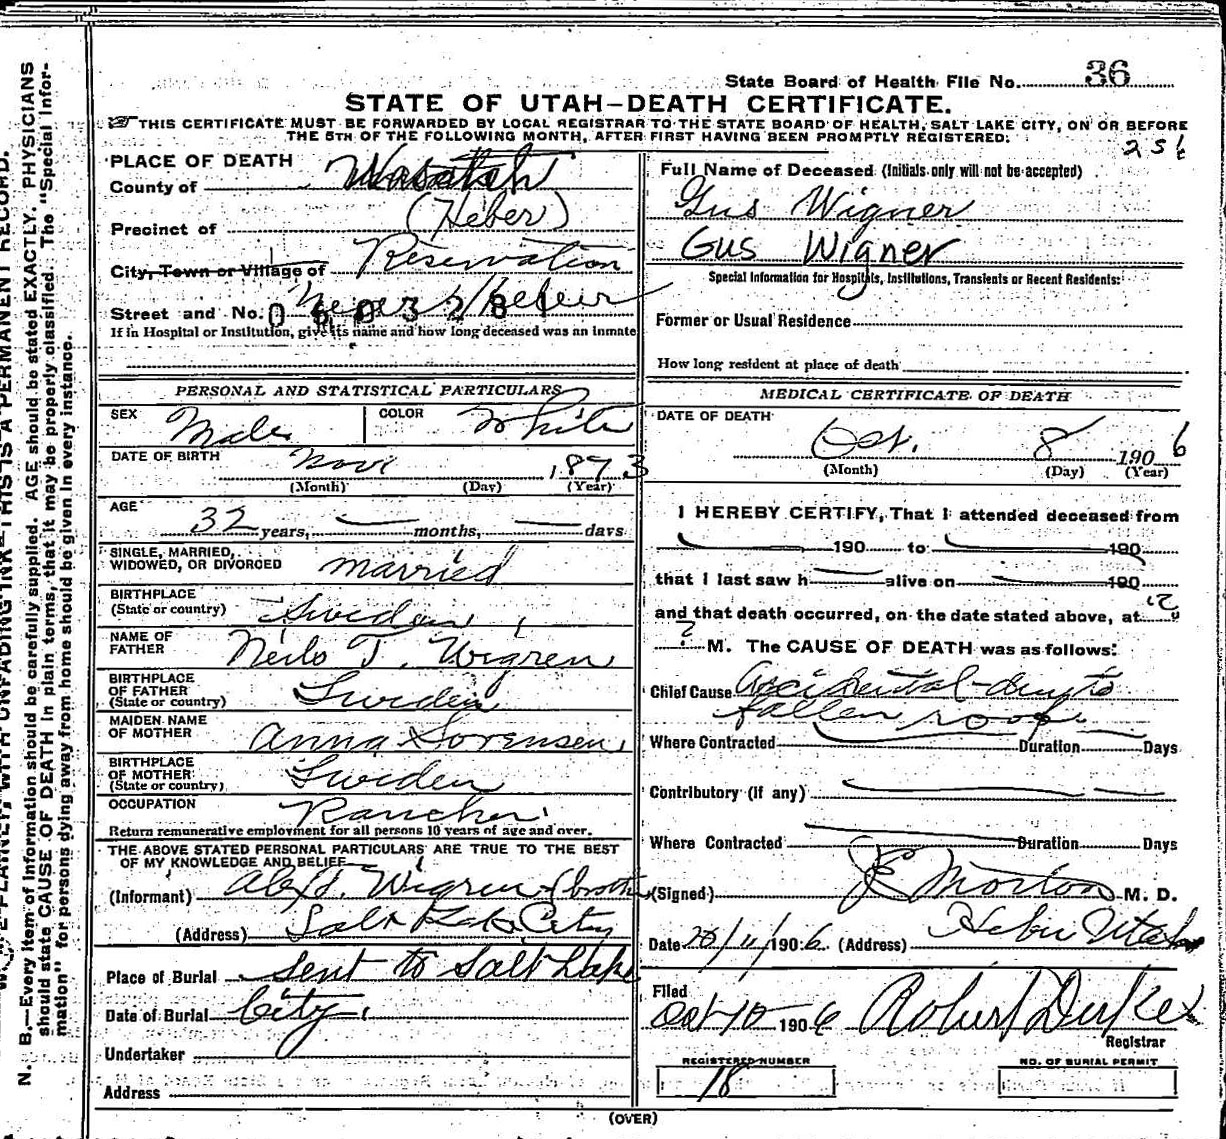 State Board of Health File No. 36
STATE OF UTAH—DEATH CERTIFICATE.
THIS CERTIFICATE MUST BE FORWARDED BY LOCAL REGISTRAR TO THE STATE BOARD OF HEALTH, SALT LAKE CITY, ON OR BEFORE
THE 5TH OF THE FOLLOWING MONTH, AFTER FIRST HAVING BEEN PROMPTLY REGISTERED.
PLACE OF DEATH
County of Wasatch
(Heber)
Precinct of
City, Town or Village of Reservation
Street and No. 0 6 0 3 2 8 1
If in Hospital or Institution, give its name and how long deceased was an inmate
PERSONAL AND STATISTICAL PARTICULARS
SEX Male COLOR White
DATE OF BIRTH Nov 1873
(Month) (Day) (Year)
AGE 32 years, — months, — days
SINGLE, MARRIED,
WIDOWED, OR DIVORCED married
BIRTHPLACE
(State or country) Sweden
NAME OF
FATHER Neils T. Wigren
BIRTHPLACE
OF FATHER
(State or country) Sweden
MAIDEN NAME
OF MOTHER Anna Sorensen
BIRTHPLACE
OF MOTHER
(State or country) Sweden
OCCUPATION Rancher
Return remunerative employment for all persons 10 years of age and over.
THE ABOVE STATED PERSONAL PARTICULARS ARE TRUE TO THE BEST
OF MY KNOWLEDGE AND BELIEF
(Informant) Wigren (broth
(Address) Salt Lake City
Place of Burial Sent to Salt Lake
Date of Burial City.
Undertaker
Address
Full Name of Deceased (Initials only will not be accepted)
Gus Wigner
Gus Wigner
Special Information for Hospitals, Institutions, Transients or Recent Residents:
Former or Usual Residence
How long resident at place of death
MEDICAL CERTIFICATE OF DEATH
DATE OF DEATH
Oct. 8 1906
(Month) (Day) (Year)
I HEREBY CERTIFY, That I attended deceased from
— 190 to — 190
that I last saw h — alive on — 190
and that death occurred, on the date stated above, at ?
? M. The CAUSE OF DEATH was as follows:
Chief Cause Accidental—due to
fallen roof
Where Contracted — Duration — Days
Contributory (if any) —
Where Contracted — Duration Days
(Signed) JE Morton M. D.
Date 10/11/1906. (Address) Heber Utah
Filed
Oct 10 1906 Robert Duke
Registrar
REGISTERED NUMBER
18
NO. OF BURIAL PERMIT
(OVER)
N. B.—Every item of information should be carefully supplied. AGE should be stated EXACTLY. PHYSICIANS
should state CAUSE OF DEATH in plain terms, that it may be properly classified. The "Special Infor-
mation" for persons dying away from home should be given in every instance.